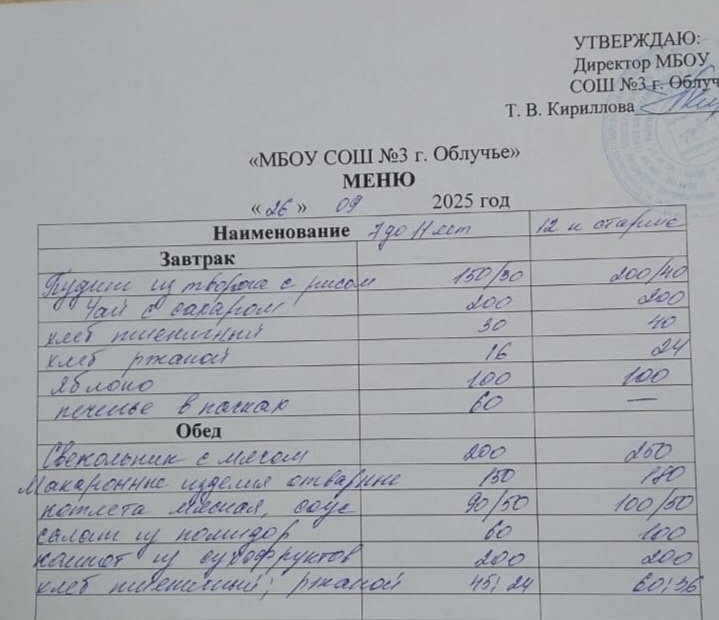 УТВЕРЖДАЮ:
Директор МБОУ
СОШ №3 г. Облуч
Т. В. Кириллова
«МБОУ СОШ №3 г. Облучье»
МЕНЮ
« 26 » 09 2025 год
Наименование 7 до 11 лет 12 и старше
Завтрак
Пудинг из творога с рисом 150/30 200/40
Чай с сахаром 200 200
хлеб пшеничный 30 40
хлеб ржаной 16 24
Яблоко 100 100
печенье в пачках 60 —
Обед
Свекольник с мясом 200 250
Макаронные изделия отварные 150 180
котлета мясная, соус 90/50 100/50
салат из помидор 60 100
компот из сухофруктов 200 200
хлеб пшеничный; ржаной 45; 24 60; 36